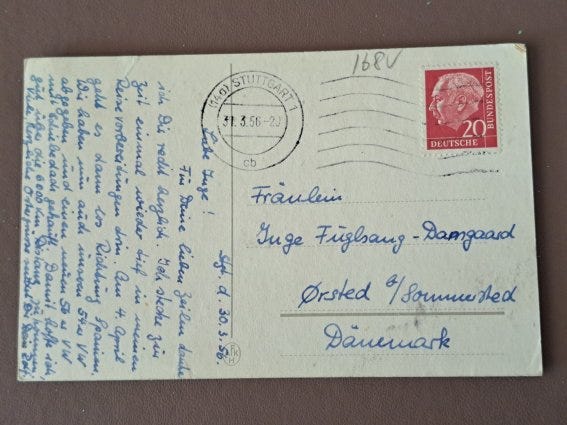 168V
(14a) STUTTGART 1
31.3.56-20
cb
20
DEUTSCHE
BUNDESPOST
Sgt d. 30.3.56.
Liebe Inge!
Für Deine lieben Zeilen danke
ich Dir recht herzlich. Ich stecke zur
Zeit einmal wieder tief in meinen
Reisevorbereitungen drin. Am 4. April
geht es dann los Richtung Spanien.
Wir haben nun auch unseren 54er VW
abgegeben und einen neuen 56er VW
mit Schiebedach gekauft. Damit hoffe ich
gut über die 6000 km
Viele herzliche Ostergrüsse
Fräulein
Inge Fuglsang-Damgaard
Ørsted p/Sommersted
Dänemark